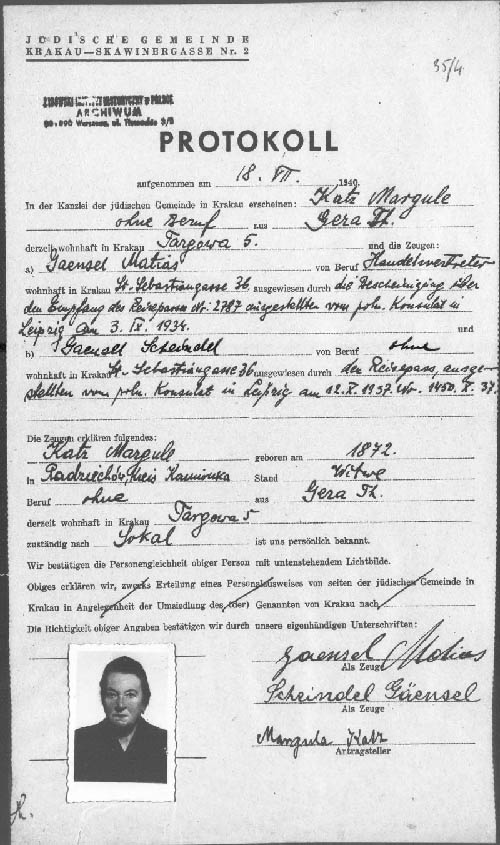 JÜDISCHE GEMEINDE
KRAKAU—SKAWINERGASSE Nr. 2
35/4
ŻYDOWSKI INSTYTUT HISTORYCZNY w POLSCE
ARCHIWUM
00-090 Warszawa, ul. Tłomackie 3/5
PROTOKOLL
aufgenommen am 18. VII. 1940.
In der Kanzlei der jüdischen Gemeinde in Krakau erscheinen: Katz Margule
ohne Beruf aus Gera Th.
derzeit wohnhaft in Krakau Targowa 5. und die Zeugen:
a) Gaensel Matias von Beruf Handelsvertreter
wohnhaft in Krakau St. Sebastiangasse 36, ausgewiesen durch die Bescheinigung über
den Empfang des Reisepasses Nr. 2787 ausgestellten vom poln. Konsulat in
Leipzig am 3. IX. 1934. und
b) Gaensel Scheindel von Beruf ohne
wohnhaft in Krakau St. Sebastiangasse 36 ausgewiesen durch den Reisepass, ausge-
stellten vom poln. Konsulat in Leipzig am 12.X.1937. Nr. 1450. X. 37.
Die Zeugen erklären folgendes:
Katz Margule geboren am 1872.
in Radziechów Kreis Kamionka Stand Witwe
Beruf ohne aus Gera Th.
derzeit wohnhaft in Krakau Targowa 5
zuständig nach Sokal ist uns persönlich bekannt.
Wir bestätigen die Personengleichheit obiger Person mit untenstehendem Lichtbilde.
Obiges erklären wir, zwecks Erteilung eines Personalausweises von seiten der jüdischen Gemeinde in
Krakau in Angelegenheit der Umsiedlung des (der) Genannten von Krakau nach
Die Richtigkeit obiger Angaben bestätigen wir durch unsere eigenhändigen Unterschriften:
Gaensel Matias
Als Zeuge
Scheindel Gäensel
Als Zeuge
Margula Katz
Antragsteller